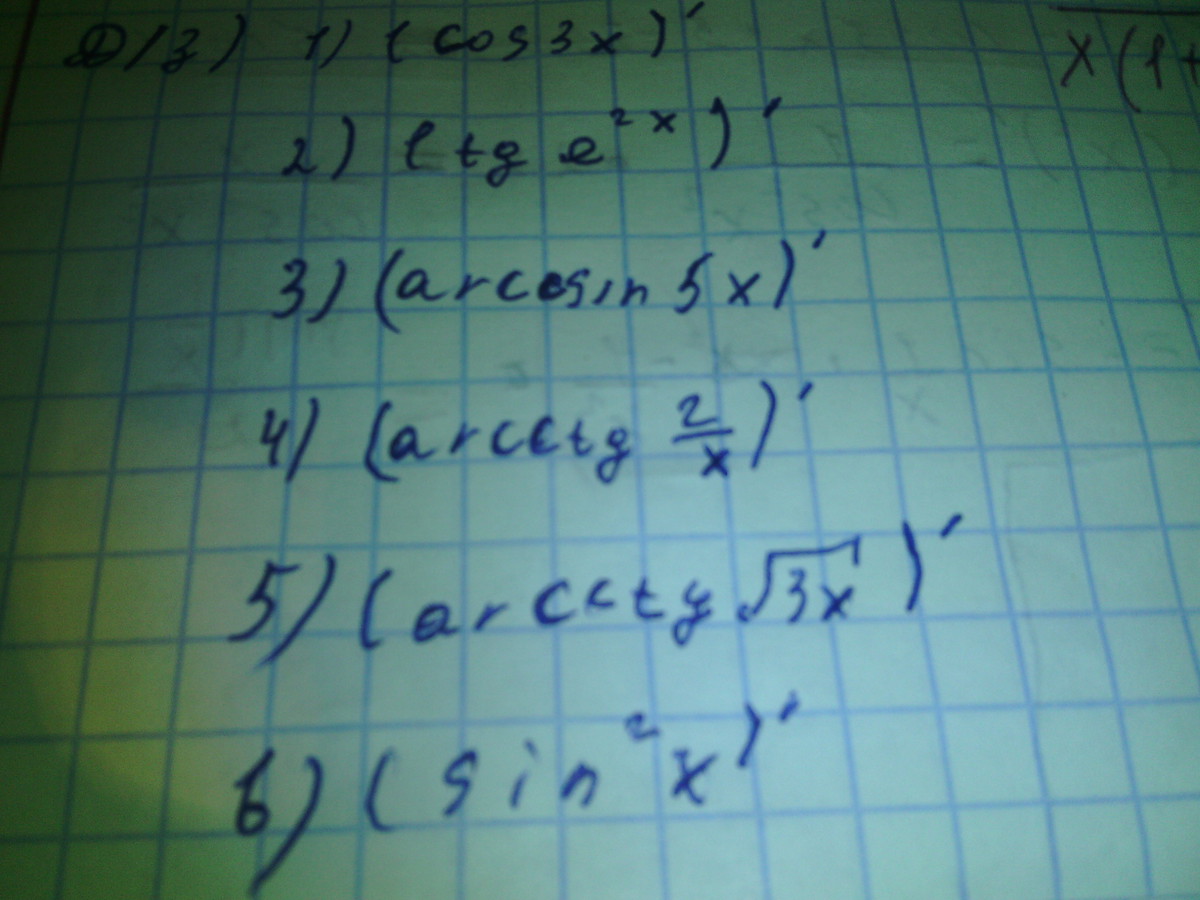 Д/з) 1) (cos 3x)′
x(1+
2) (tg e^{2x})′
3) (arcsin 5x)′
4) (arcctg \frac{2}{x})′
5) (arcctg √3x)′
6) (sin²x)′